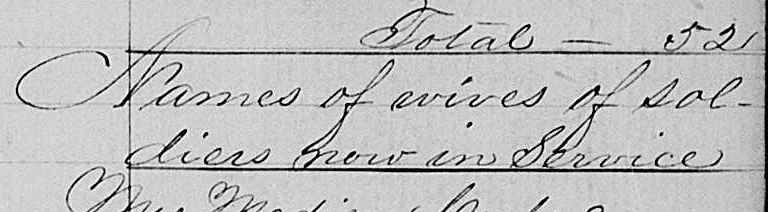 Total — 52
Names of wives of sol-
diers now in Service
Mrs